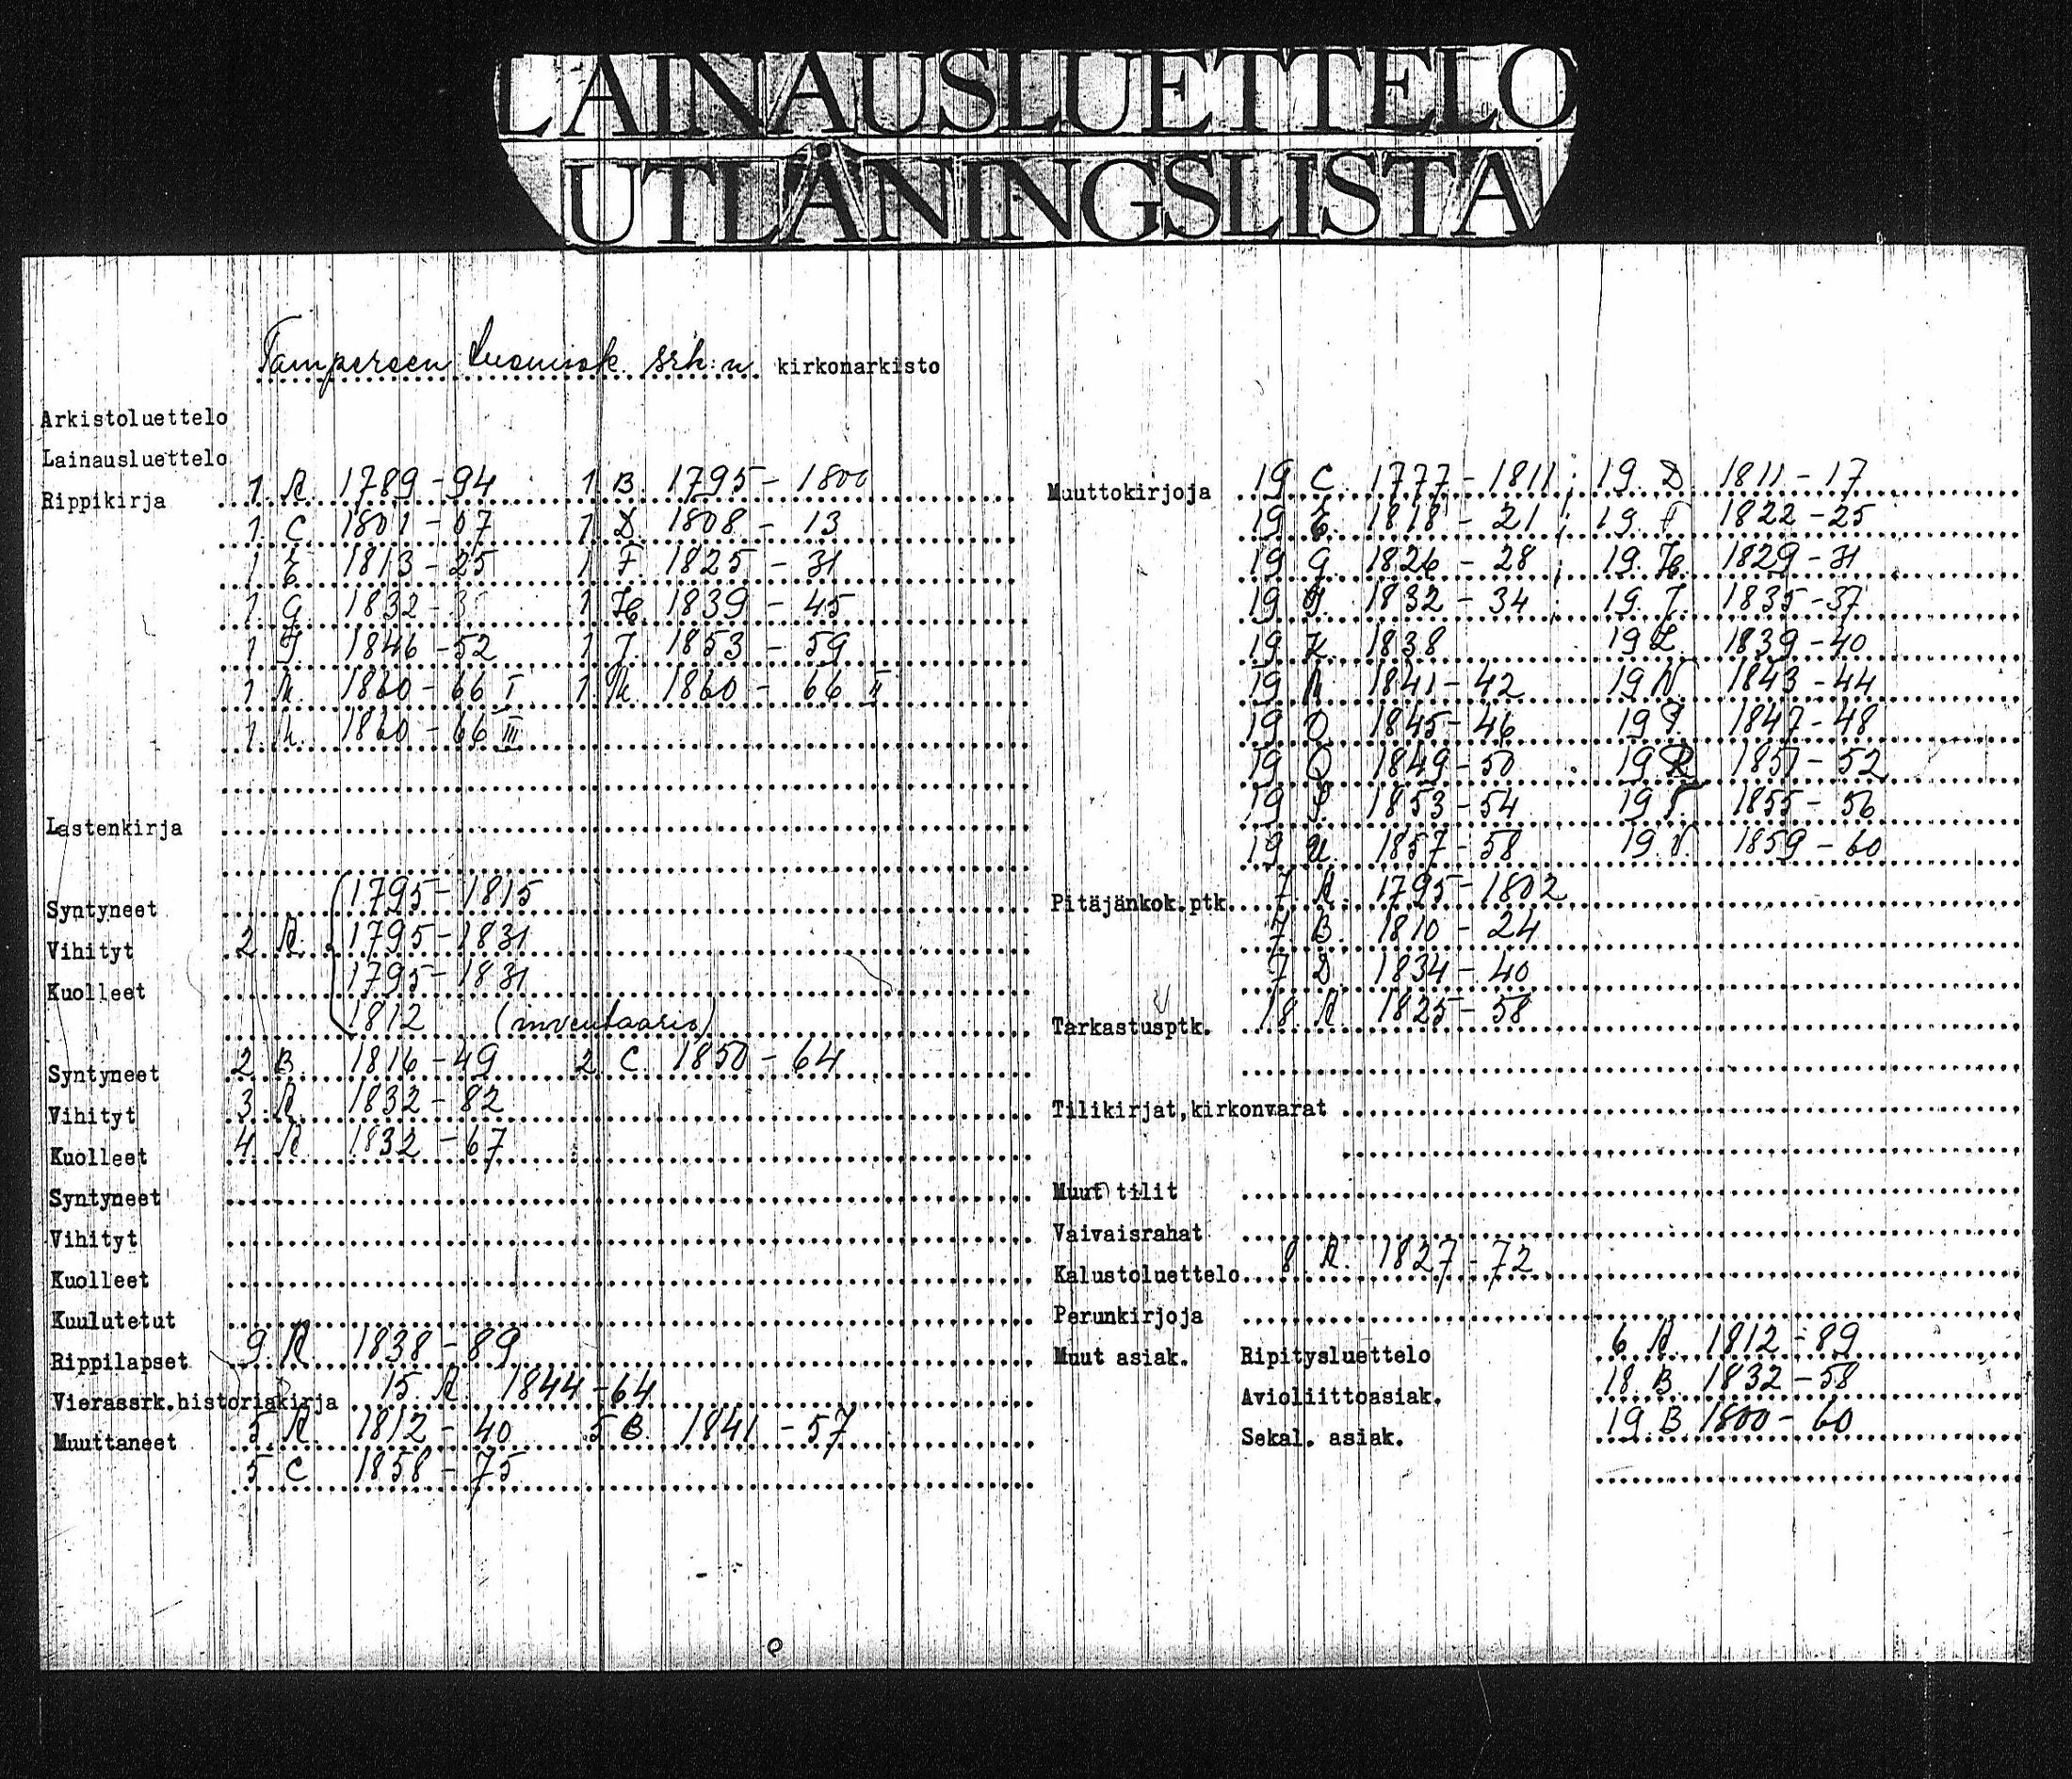 LAINAUSLUETTELO
UTLÅNINGSLISTA
Tampereen tuomiok. srk:n kirkonarkisto
Arkistoluettelo
Lainausluettelo
Rippikirja 1 A. 1789-94 1 B. 1795-1800
1 C. 1801-07 1 D. 1808-13
1 E 1813-25 1 F. 1825-31
1 G. 1832- 1 H. 1839-45
1 I. 1846-52 1 J. 1853-59
1 K. 1860-66 I 1 K. 1860-66 II
1 K. 1860-66 III
Lastenkirja
Syntyneet 1795-1815
Vihityt 2 A. 1795-1831
Kuolleet 1795-1831
1812 (inventaario)
Syntyneet 2 B. 1816-49 2 C. 1850-64
Vihityt 3 A. 1832-82
Kuolleet 4 A 1832-67
Syntyneet
Vihityt
Kuolleet
Kuulutetut
Rippilapset 9 A. 1838-89
Vierassrk.historiakirja 15 A. 1844-64
Muuttaneet 5 A. 1812-40 5 B. 1841-57
5 C 1858-75
Muuttokirjoja 19 C. 1777-1811; 19 D. 1811-17
19 E. 1818-21; 19 F 1822-25
19 G. 1826-28; 19 H. 1829-31
19 I. 1832-34; 19 J. 1835-37
19 K. 1838 19 L. 1839-40
19 M 1841-42 19 N. 1843-44
19 O. 1845-46 19 P. 1847-48
19 Q 1849-50 19 R 1851-52
19 S. 1853-54 19 T. 1855-56
19 U. 1857-58 19 V. 1859-60
Pitäjänkok.ptk. 7 A. 1795-1802
7 B. 1810-24
7 D. 1834-40
Tarkastusptk. 18 A 1825-58
Tilikirjat, kirkonvarat
Muut tilit
Vaivaisrahat
Kalustoluettelo 8 A. 1827-72
Perunkirjoja
Muut asiak. Ripitysluettelo 6 A. 1812-89
Avioliittoasiak. 18 B. 1832-58
Sekal. asiak. 19 B 1800-60